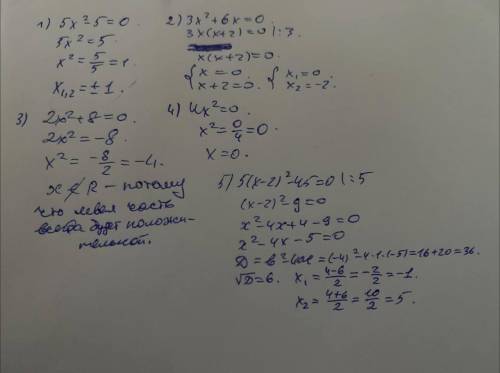 1) 5x²-5=0.
5x²=5.
x²=5/5=1.
x₁,₂=±1.
2) 3x²+6x=0.
3x(x+2)=0 |:3.
x(x+2)=0.
{x=0. {x₁=0.
{x+2=0. {x₂=-2.
3) 2x²+8=0.
2x²=-8.
x²=-8/2=-4.
x∉R - потому
что левая часть
всегда будет положи-
тельной.
4) 4x²=0.
x²=0/4=0.
x=0.
5) 5(x-2)²-45=0 |:5
(x-2)²-9=0
x²-4x+4-9=0
x²-4x-5=0
D=b²-4ac=(-4)²-4·1·(-5)=16+20=36.
√D=6. x₁=4-6/2=-2/2=-1.
x₂=4+6/2=10/2=5.